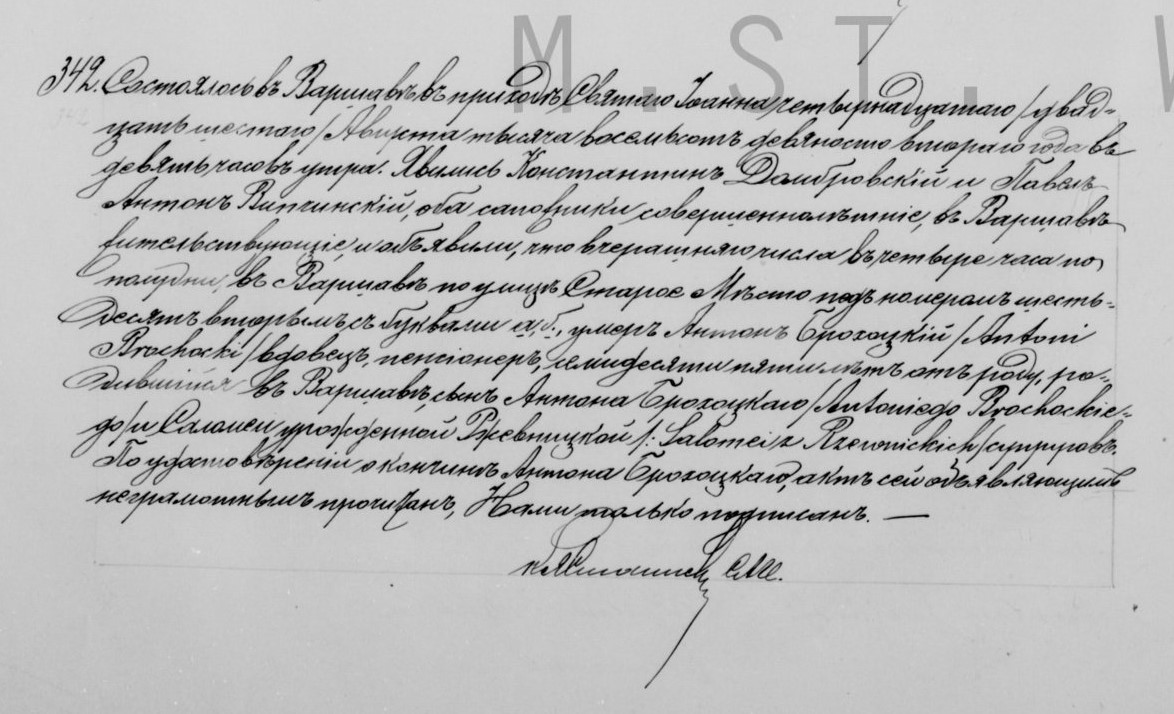 M. ST. W
342. Состоялось въ Варшавѣ, въ приходѣ Святаго Іоанна, четырнадцатаго /двад-
цать шестаго/ Августа тысяча восемьсотъ девяносто втораго года въ
девять часовъ утра. Явились Константинъ Домбровскій и Павелъ
Антонъ Випчинскій, оба сапожники, совершеннолѣтніе, въ Варшавѣ
жительствующіе, и объявили, что вчерашняго числа въ четыре часа по
полудни, въ Варшавѣ по улицѣ Старое Мѣсто подъ номеромъ шесть-
десятъ вторымъ, съ буквами а,б., умеръ Антонъ Брохоцкій /Antoni
Brochocki/ вдовецъ, пенсіонеръ, семидесяти пяти лѣтъ отъ роду, ро-
дившійся въ Варшавѣ, сынъ Антона Брохоцкаго /Antoniego Brochockie-
go/ и Саломеи урожденной Ржевницкой /: Salomei z Rzewnickich/ супруговъ.
По удостовѣреніи о кончинѣ Антона Брохоцкаго, актъ сей объявляющимъ
неграмотнымъ прочитанъ, Нами только подписанъ. —